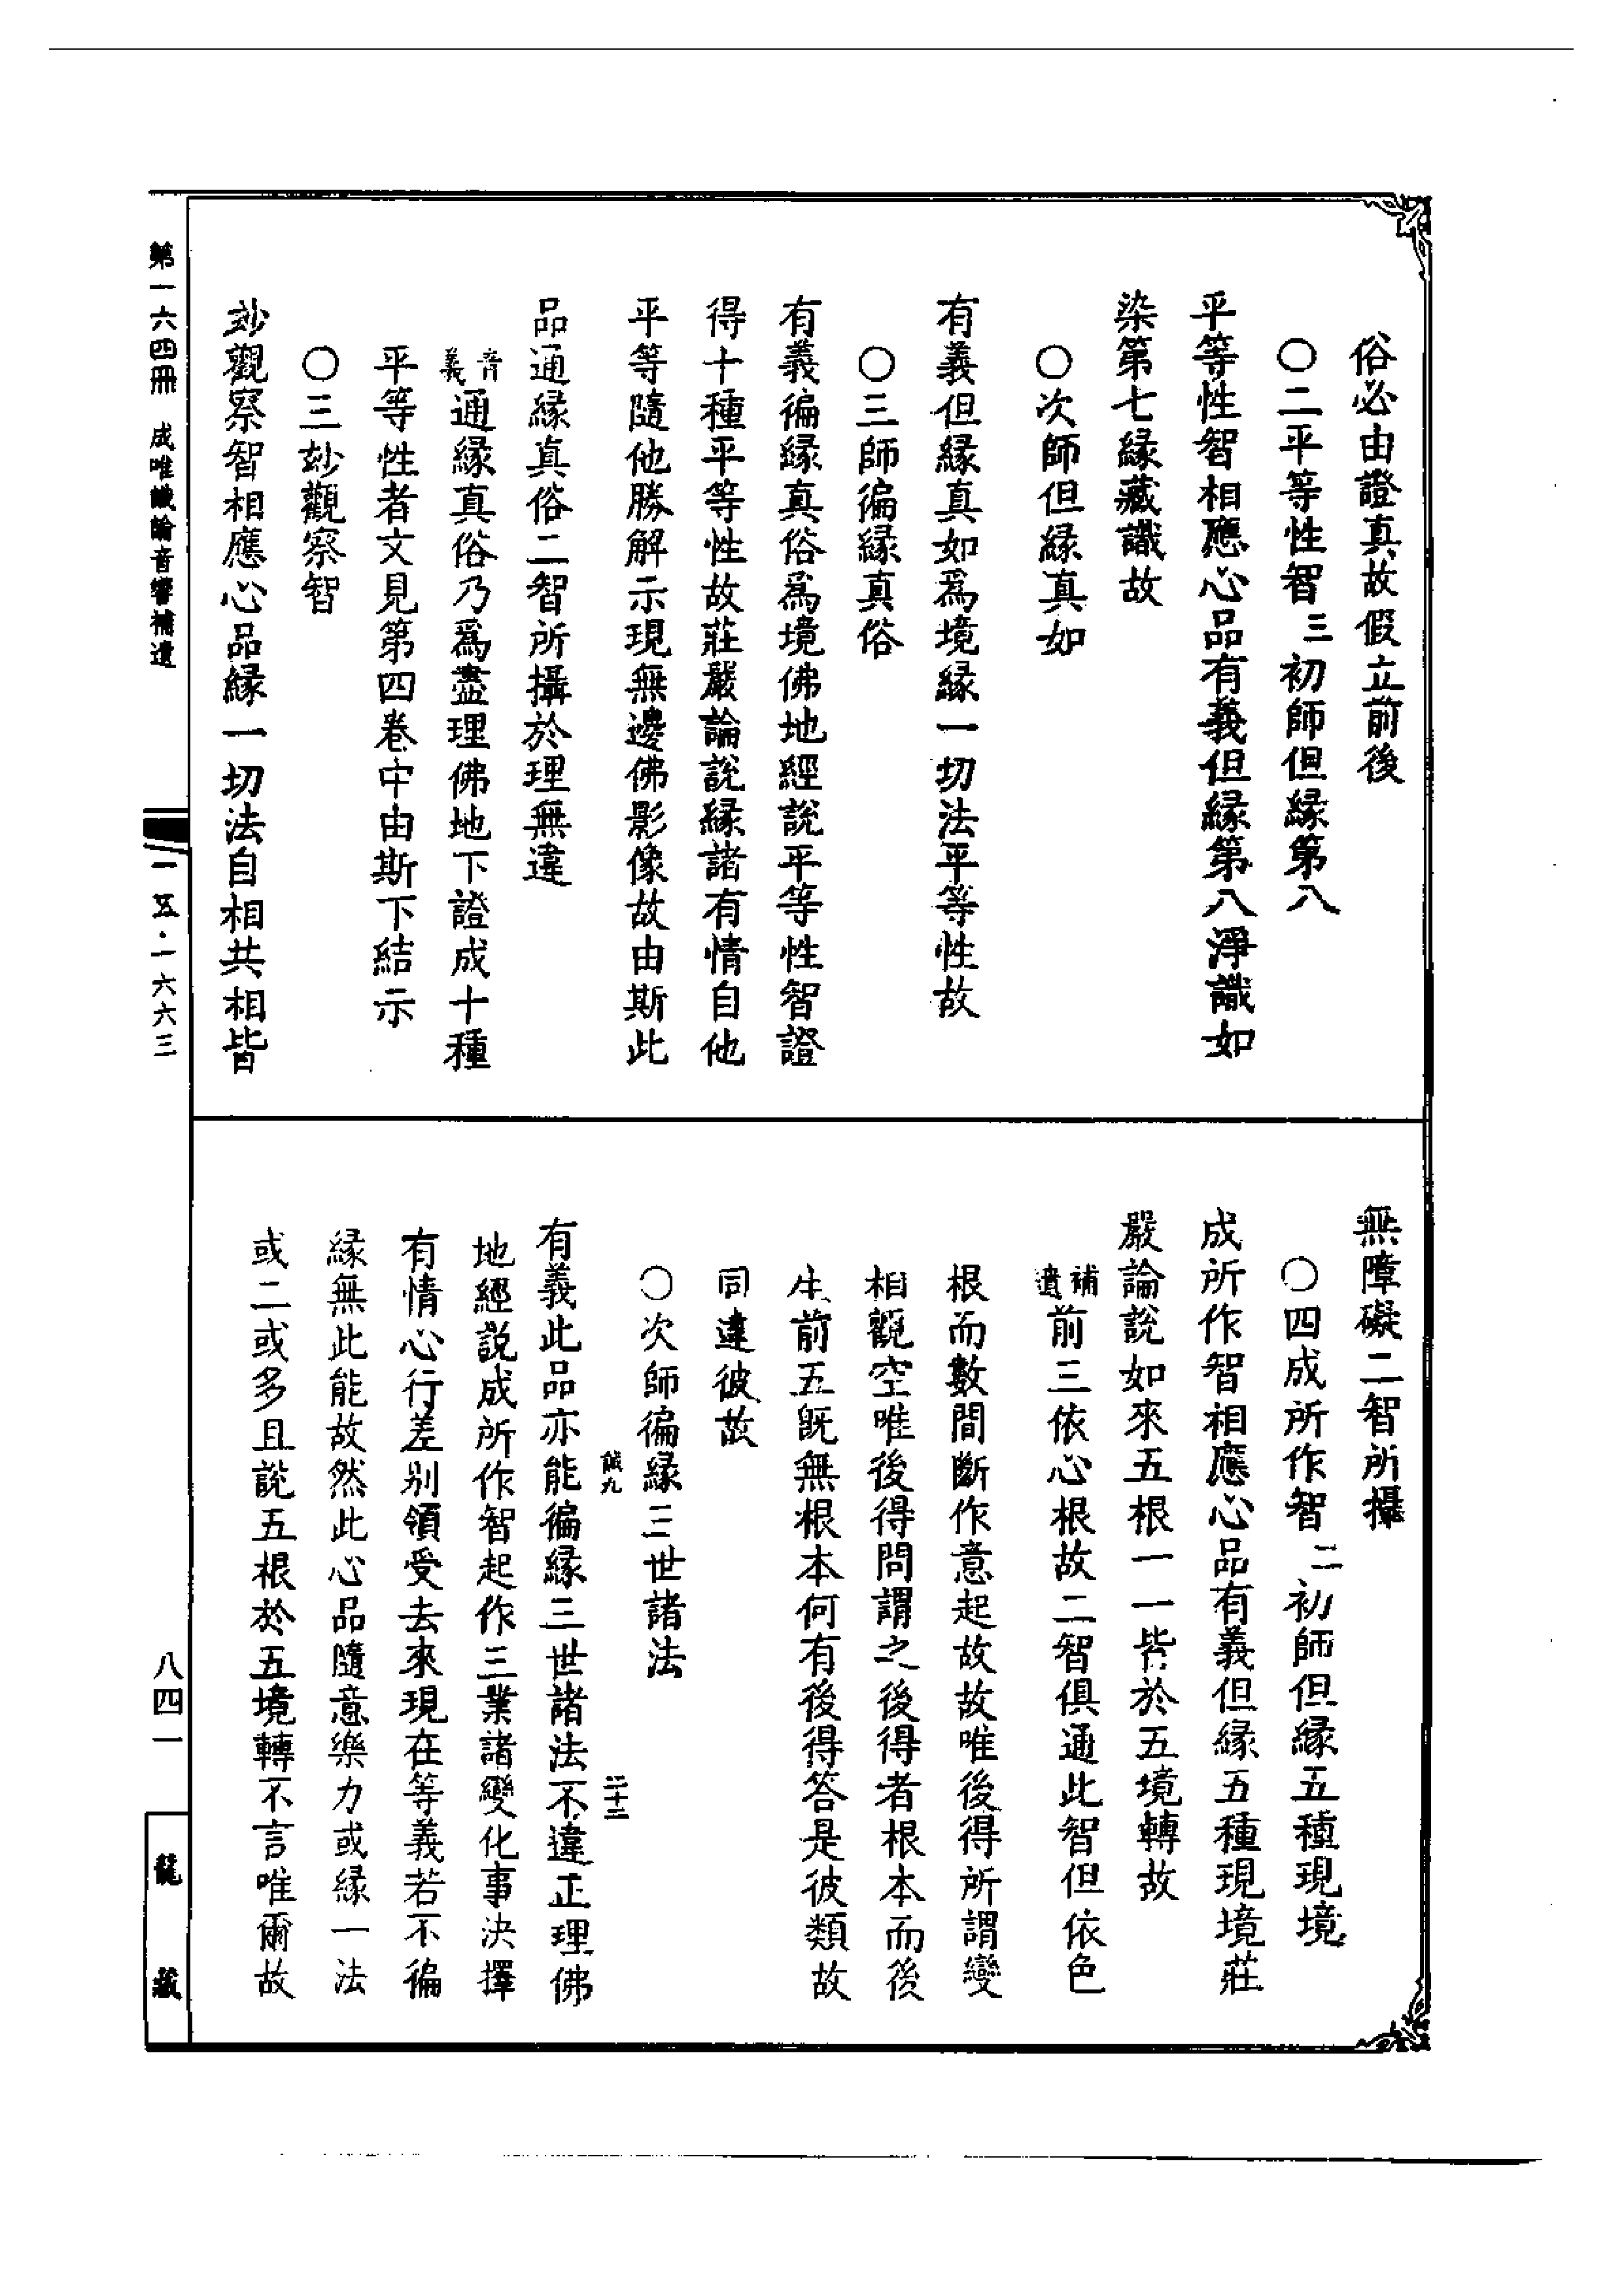 俗必由證真故假立前後
〇二平等性智三初師但緣第八
平等性智相應心品有義但緣第八淨識如
染第七緣藏識故
〇次師但緣真如
有義但緣真如爲境緣一切法平等性故
〇三師徧緣真俗
有義徧緣真俗爲境佛地經說平等性智證
得十種平等性故莊嚴論說緣諸有情自他
平等隨他勝解示現無邊佛影像故由斯此
品通緣真俗二智所攝於理無違
音義通緣真俗乃爲盡理佛地下證成十種
平等性者文見第四卷中由斯下結示
〇三妙觀察智
妙觀察智相應心品緣一切法自相共相皆
無障礙二智所攝
〇四成所作智二初師但緣五種現境
成所作智相應心品有義但緣五種現境莊
嚴論說如來五根一一皆於五境轉故
補遺前三依心根故二智俱通此智但依色
根而數間斷作意起故故唯後得所謂變
相觀空唯後得問謂之後得者根本而後
生前五旣無根本何有後得答是彼類故
同違彼故
〇次師徧緣三世諸法
誠九 二十二
有義此品亦能徧緣三世諸法不違正理佛
地經說成所作智起作三業諸變化事決擇
有情心行差別領受去來現在等義若不徧
緣無此能故然此心品隨意樂力或緣一法
或二或多且說五根於五境轉不言唯爾故
第一六四冊 成唯識論音響補遺
一五·一六六三
八四一
龍藏